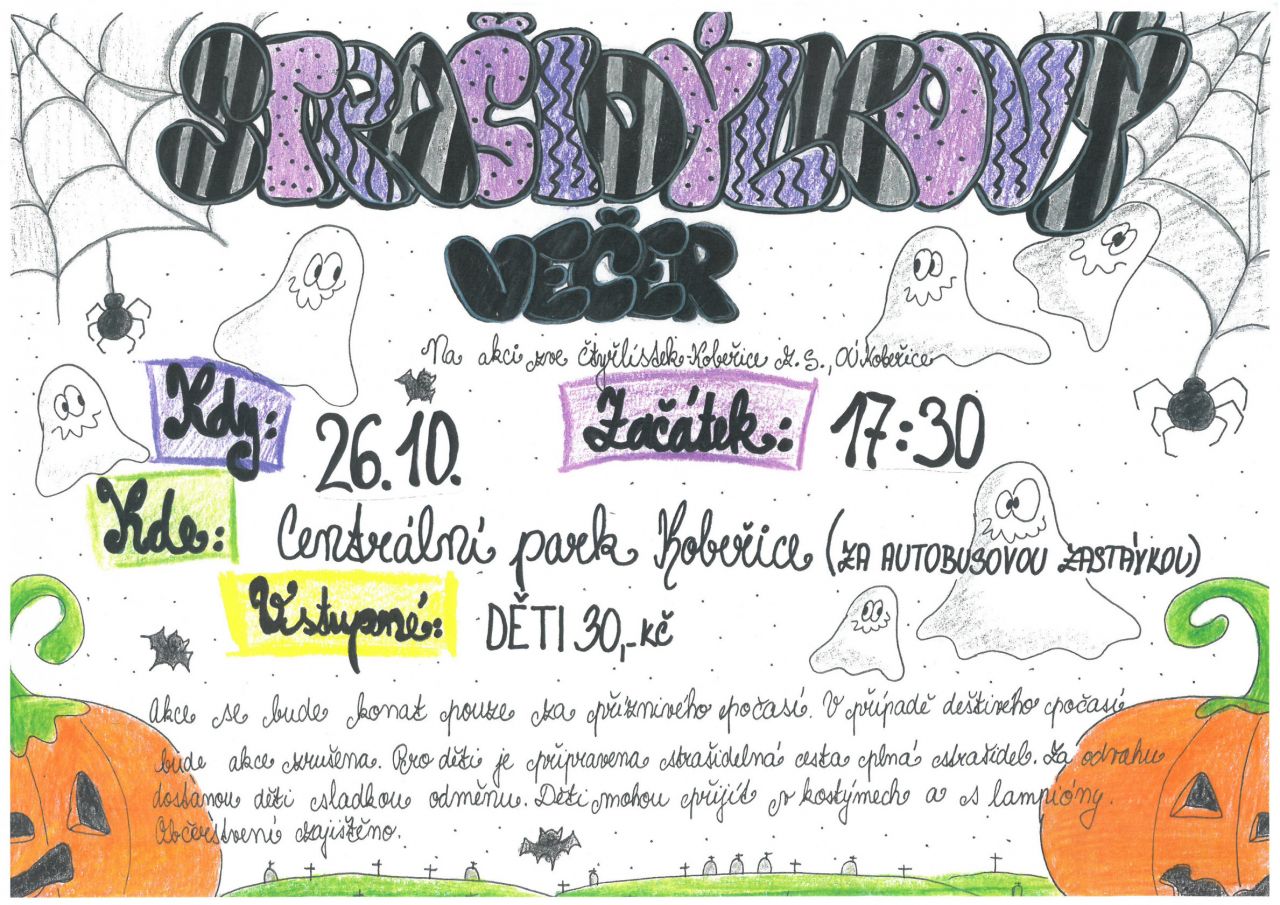 STRAŠIDÝLKOVÝ
VEČER
Na akci zve Čtyřlístek-Kobeřice z.s., OÚ Kobeřice
Kdy: 26.10. Začátek: 17:30
Kde: Centrální park Kobeřice (ZA AUTOBUSOVOU ZASTÁVKOU)
Vstupné: DĚTI 30,-KČ
Akce se bude konat pouze za příznivého počasí. V případě deštivého počasí
bude akce zrušena. Pro děti je připravena strašidelná cesta plná strašidel. Za odvahu
dostanou děti sladkou odměnu. Děti mohou přijít v kostýmech a s lampióny.
Občerstvení zajištěno.